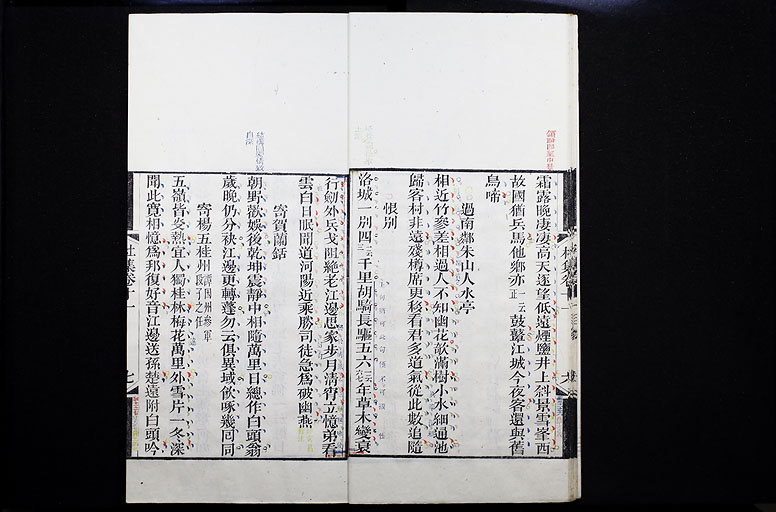 霜露晚淒淒高天逐望低遠煙鹽井上斜景雪峯西
故國猶兵馬他鄉亦一云正鼓鼙江城今夜客還與舊
烏啼
過南鄰朱山人水亭
相近竹參差相過人不知幽花欹滿樹小水細通池
歸客村非遠殘樽席更移看君多道氣從此數追隨
恨別
洛城一別四千里胡騎長驅五六年草木變衰
行劍外兵戈阻絕老江邊思家步月清宵立憶弟看
雲白日眠聞道河陽近乘勝司徒急為破幽燕
寄賀蘭銛
朝野歡娛後乾坤震蕩中相隨萬里日總作白頭翁
歲晚仍分袂江邊更轉蓬勿云俱異域飲啄幾回同
寄楊五桂州譚因州參軍段子之任
五嶺皆炎熱宜人獨桂林梅花萬里外雪片一冬深
聞此寬相憶為邦復好音江邊送孫楚遠附白頭吟
杜集卷十一